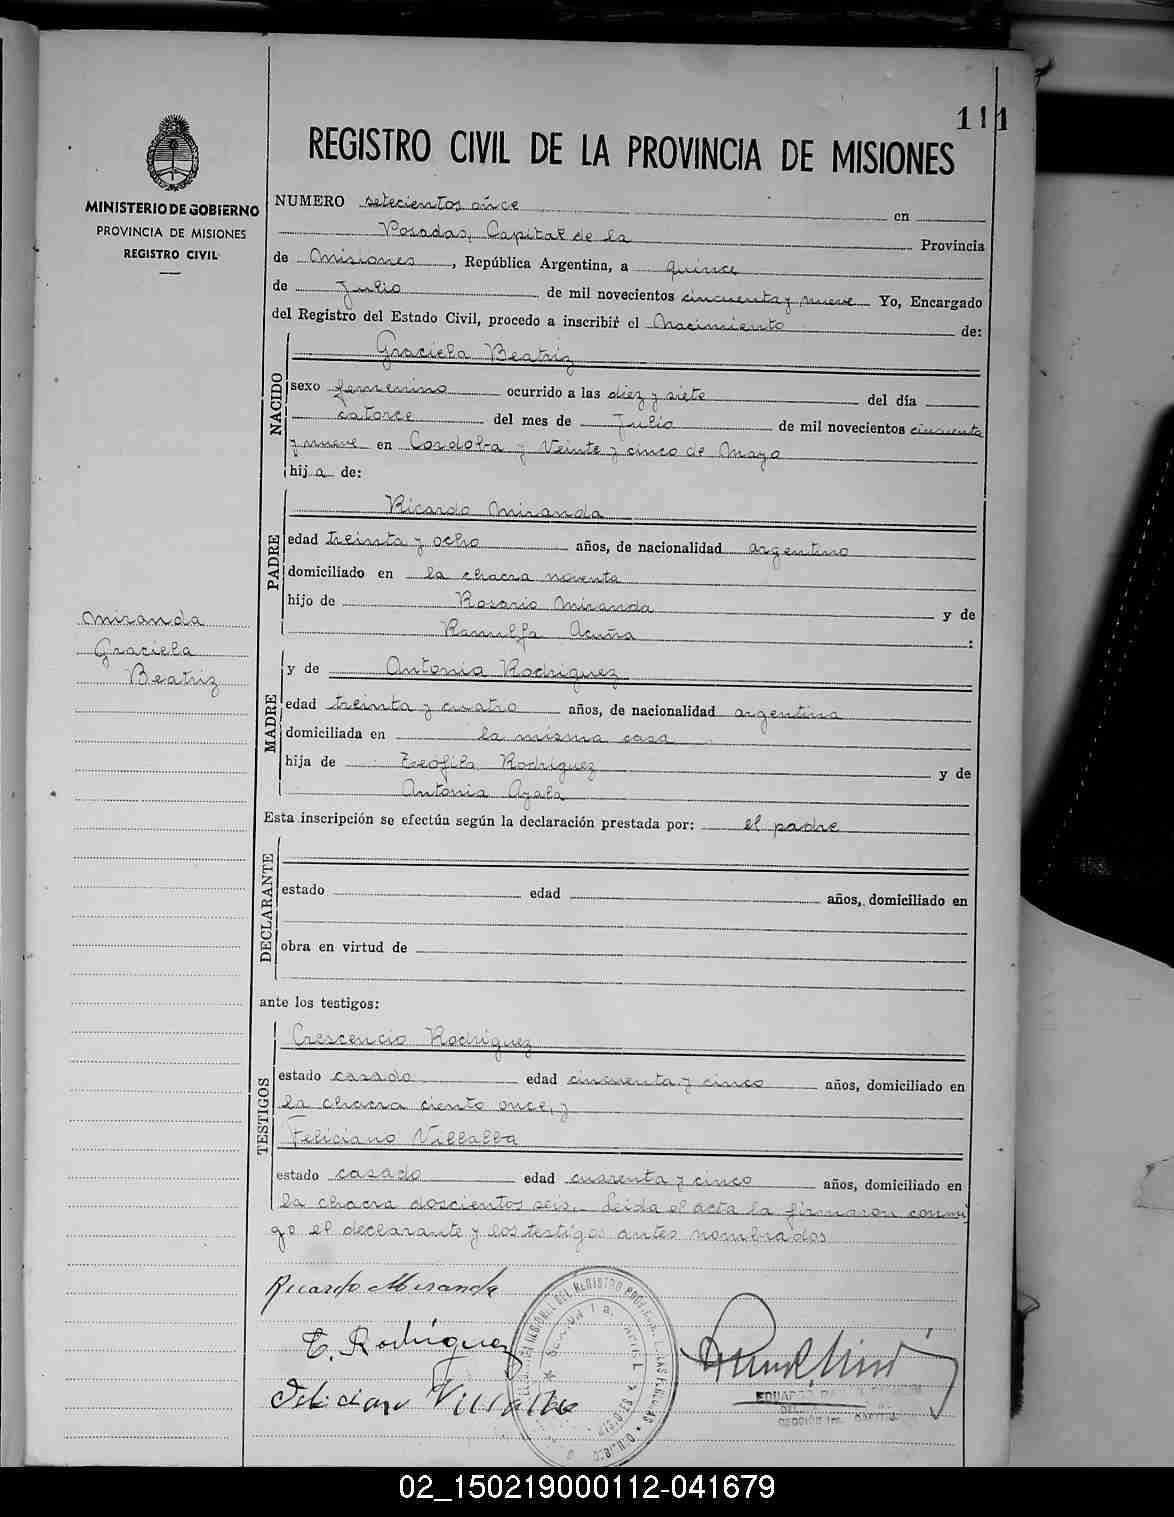 111
REGISTRO CIVIL DE LA PROVINCIA DE MISIONES
MINISTERIO DE GOBIERNO
PROVINCIA DE MISIONES
REGISTRO CIVIL
NUMERO setecientos once en
Posadas, Capital de la Provincia
de Misiones, República Argentina, a quince
de Julio de mil novecientos cincuenta y nueve Yo, Encargado
del Registro del Estado Civil, procedo a inscribir el Nacimiento de:
NACIDO
Graciela Beatriz
sexo femenino ocurrido a las diez y siete del día
catorce del mes de Julio de mil novecientos cincuenta
y nueve en Cordoba y Veinte y cinco de Mayo
hij a de:
PADRE
Ricardo Miranda
edad treinta y ocho años, de nacionalidad argentino
domiciliado en la chacra noventa
hijo de Rosario Miranda y de
Ramulfa Acuña :
Miranda
Graciela
Beatriz
MADRE
y de Antonia Rodriguez
edad treinta y cuatro años, de nacionalidad argentina
domiciliada en la misma casa
hija de Teofilo Rodriguez y de
Antonia Ayala
Esta inscripción se efectúa según la declaración prestada por: el padre
DECLARANTE
estado edad años, domiciliado en
obra en virtud de
ante los testigos:
TESTIGOS
Crescencio Rodriguez
estado casado edad cincuenta y cinco años, domiciliado en
la chacra ciento once, y
Feliciano Villalba
estado casado edad cuarenta y cinco años, domiciliado en
la chacra doscientos seis.- Leida el acta la firmaron conmi
go el declarante y los testigos antes nombrados
Ricardo Miranda
C. Rodriguez
Feliciano Villalba
EDUARDO
02_150219000112-041679